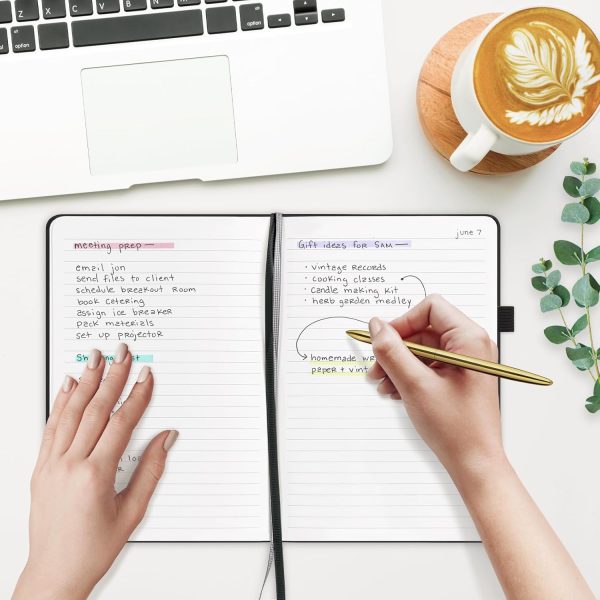 option
option
meeting prep —
email jon
send files to client
schedule breakout room
book catering
assign ice breaker
pack materials
set up projector
june 7
Gift ideas for Sam —
· vintage records
· cooking classes
· candle making kit
· herb garden medley
homemade
paper +